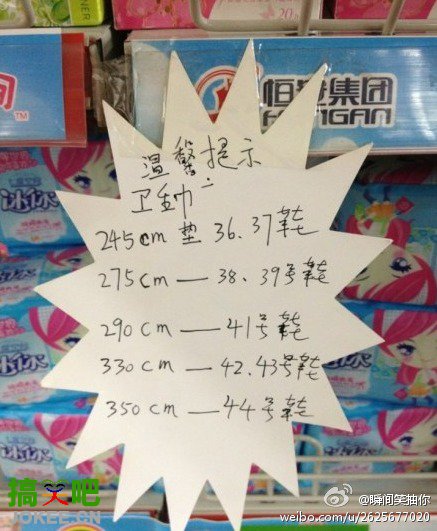 恒安集团
HENGAN
温馨提示
卫生巾:
245cm 垫 36.37鞋
275cm — 38.39号鞋
290cm — 41号鞋
330cm — 42.43号鞋
350cm — 44号鞋
搞笑吧
JOKE8.CN
@瞬间笑抽你
weibo.com/u/2625677020